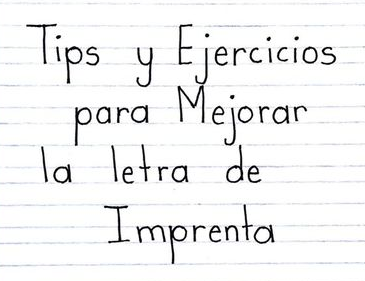 Tips y Ejercicios
para Mejorar
la letra de
Imprenta